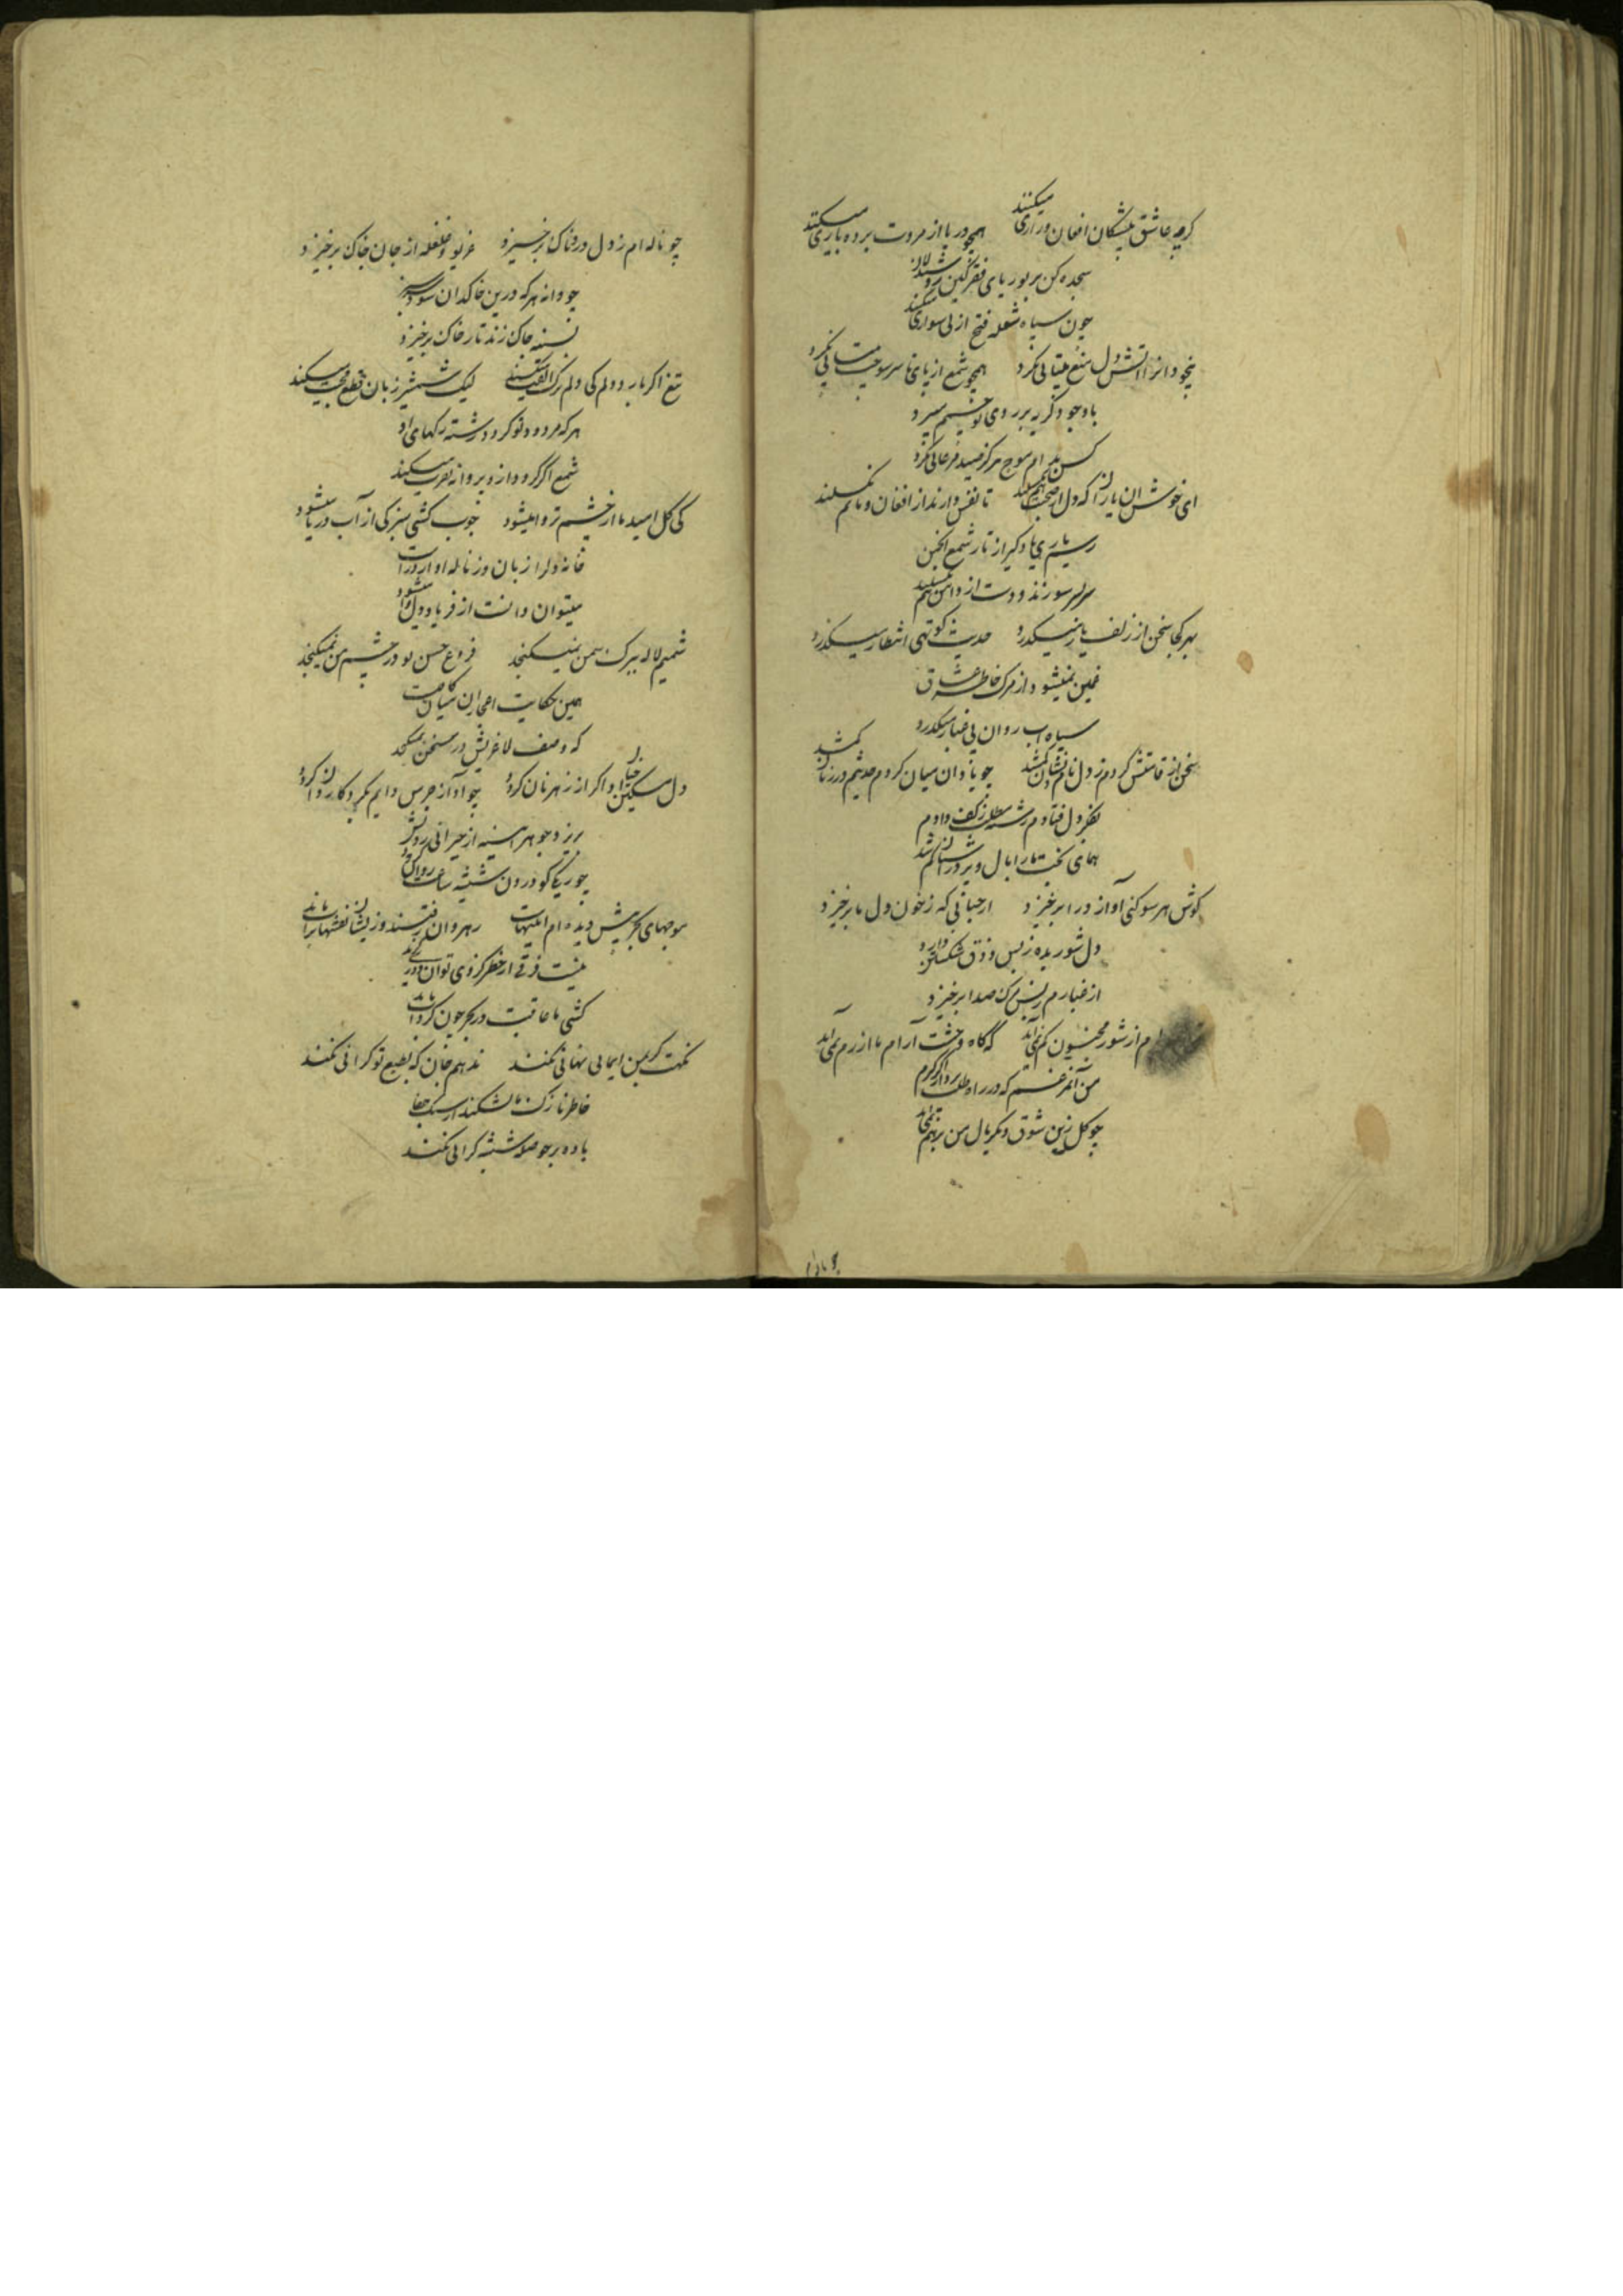 کرچه عاشق پیشکان افغان و زاری میکنند همچو دریا از مروت پرده‌داری میکنند
سجده کن بر بوریای فقر
چون سپاه شعله فتح از نی سواری میکنند
بیخودانرا آتش دل منع بیتابی نکرد همچو شمع از پای تا سر سوخت
باوجود گریه بر روی تو چشم
کس بدام موج هرگز صید مرغابی نکرد
ای خوش آن یاران که دل از صحبت هم نکسلند تا نفس دارند از افغان و ماتم نکسلند
رسم یاری یاد گیر از تار شمع انجمن
سربسر سوزند و دست از دامن هم نکسلند
بهر کجا سخن از زلف یار میگذرد حدیث کوتهی انتظار میگذرد
غمین نمیشود از مرگ خاطر عشاق
سپاه آب روان بی غبار میگذرد
سخن از قامتش کردم ز دل نام و نشان گم شد چو یاد آن میان کردم حدیثم در زبان گم شد
بفکر دل فتادم رشته مطلب ز کف دادم
همای بخت ما را بال و پر در آشیان گم شد
گوش هر سو کنی آواز درا برخیزد از حبابی که ز خون دل ما برخیزد
دل شوریده ز بس ذوق شکستن دارد
از غبارم صدا برخیزد
از شور کم نمی‌آید که گاه وحشت آرام ما از رم نمی‌آید
من آن مرغم که در راه طلب پرواز اگر کردم
چو گل زین شوق دیگر بال من بر هم نمی‌آید
چو ناله‌ام ز دل دردناک برخیزد غریو و غلغله از جان خاک برخیزد
چو دانه هر که درین خاکدان شود سرسبز
بسینه چاک زند تا ز خاک برخیزد
تیغ اگر بارد دلم کی ترک الفت میکند لیک شمشیر زبان قطع محبت میکند
هر که مردود تو گردد رشته رگهای او
شمع اگر گردد از و پروانه نفرت میکند
کی گل امید ما از چشم تر وا میشود چوب کشتی سبز کی از آب دریا میشود
خانه دل را زبان و ناله آواز در است
میتوان دانست از فریاد دل وا میشود
شمیم لاله ببرگ سمن نمیگنجد فروغ حسن تو در چشم من نمیگنجد
همین حکایت
که وصف لاغریش در سخن نمیگنجد
دل مسکین اگر از رهزنان گردد چو آواز جرس دایم بگرد کاروان گردد
بریزد جوهر آیینه از حیرانی رویش
چو ریگی کو درون شیشه ساعت روان گردد
موجهای بحر پیش دیده‌ام رهروان رفتند وزیشان نقشها بر آب ماند
نیست فرقی از خطر
کشتی ما عاقبت در بحر چون گرداب ماند
ایمایی نهانی نکند ندهم جان که بطبع تو گرانی نکند
خاطر نازک ما نشکند از سنگ جفا
باده بر حوصله شیشه گرانی نکند